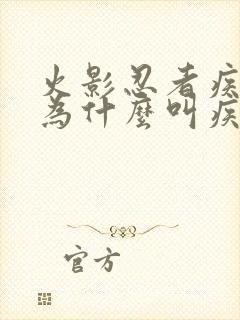 火影忍者疾
為什麼叫疾
官方